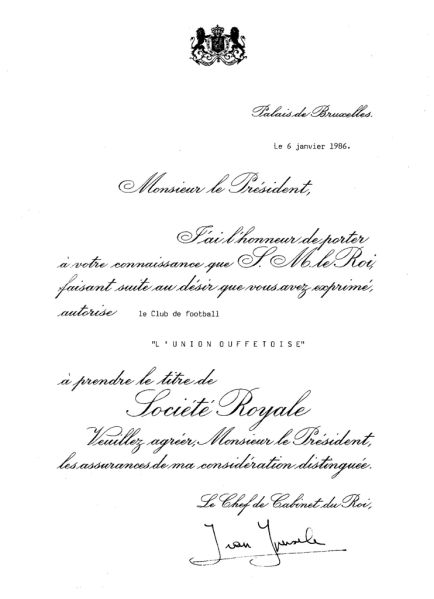 Palais de Bruxelles.
Le 6 janvier 1986.
Monsieur le Président,
J'ai l'honneur de porter
à votre connaissance que S. M le Roi,
faisant suite au désir que vous avez exprimé,
autorise le Club de football
"L'UNION OUFFETOISE"
à prendre le titre de
Société Royale
Veuillez agréer, Monsieur le Président,
les assurances de ma considération distinguée.
Le Chef de Cabinet du Roi,